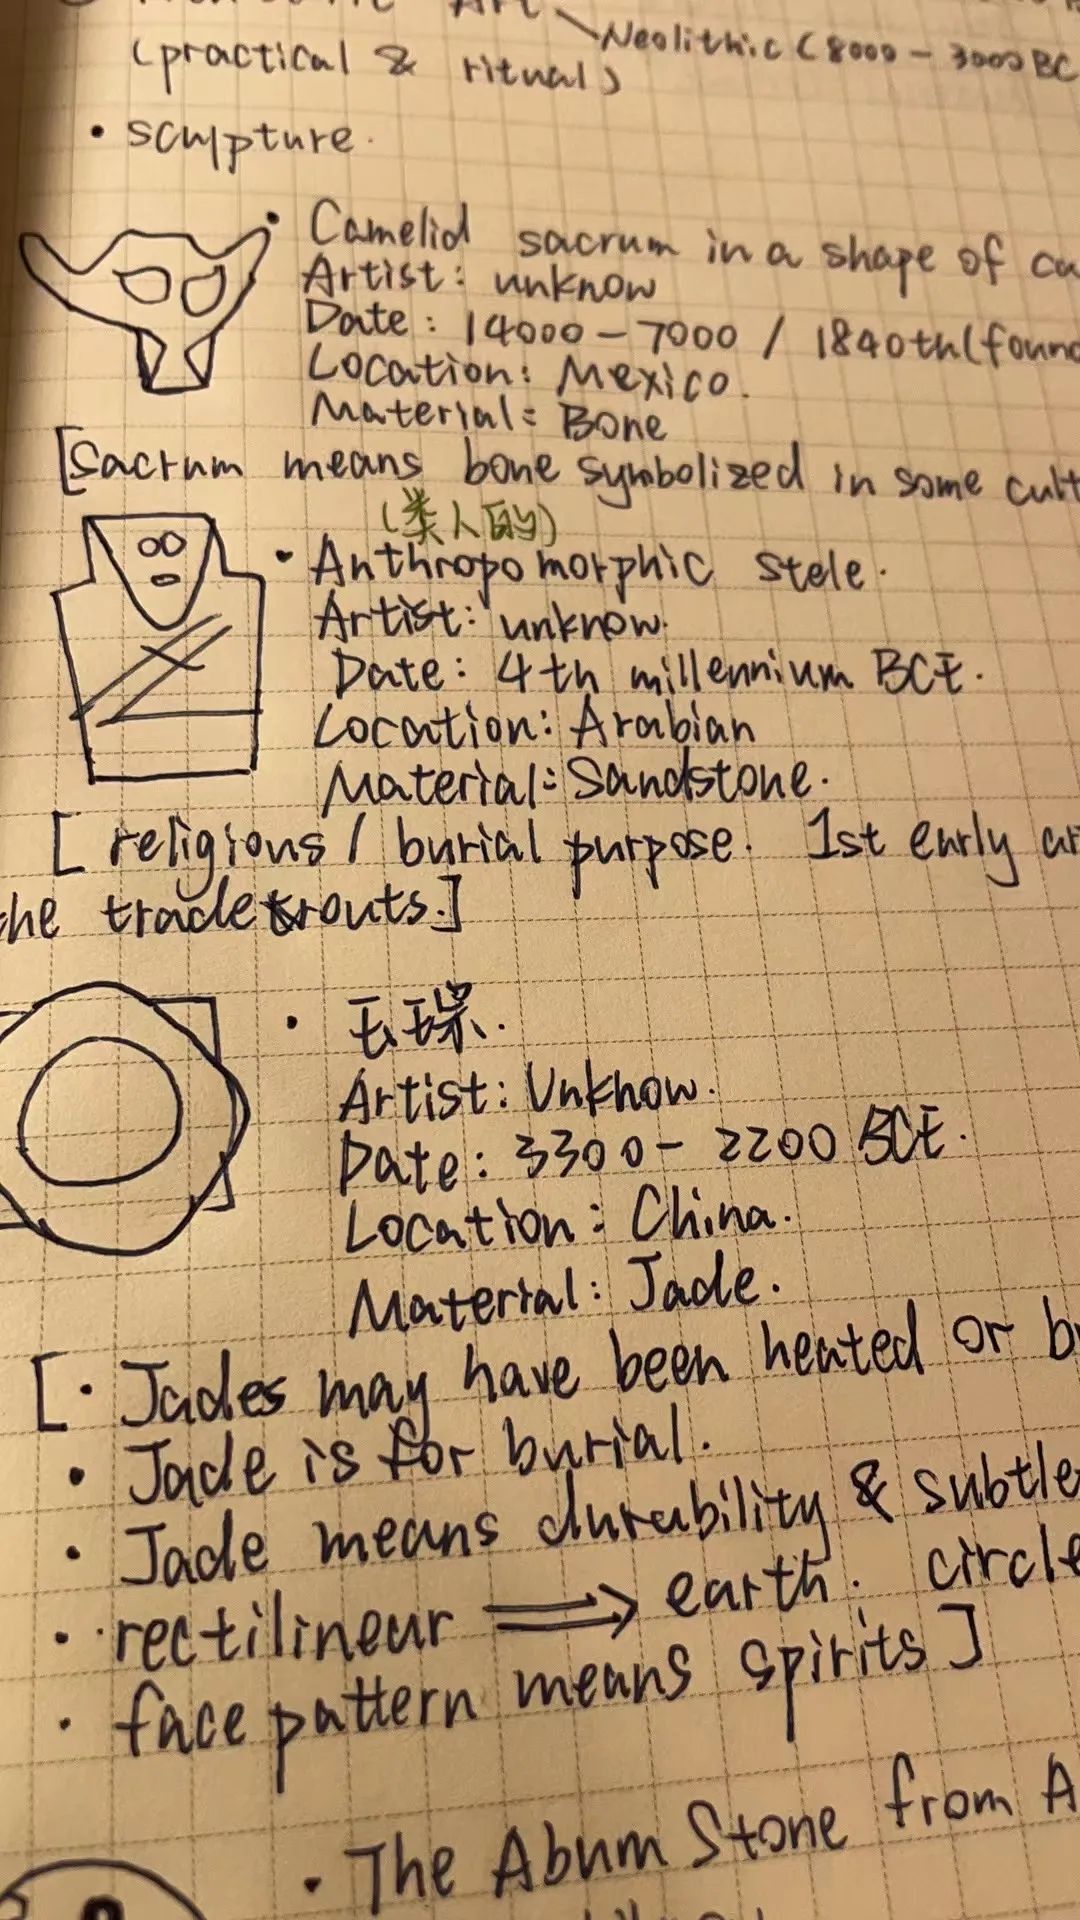 Art Neolithic (8000-3000 BC
(practical & ritual)
• sculpture.
• Camelid sacrum in a shape of ca
Artist: unknow
Date: 14000-7000 / 1840th (foun
Location: Mexico.
Material: Bone
[Sacrum means bone symbolized in some cult
(类人的)
• Anthropomorphic stele.
Artist: unknow.
Date: 4th millennium BCE.
Location: Arabian
Material: Sandstone.
[ religions / burial purpose. 1st early ar
he trade routs.]
• 玉琮.
Artist: Unknow.
Date: 3300-2200 BCE.
Location: China.
Material: Jade.
[ • Jades may have been heated or b
• Jade is for burial.
• Jade means durability & subtle
• rectilinear ⟹ earth. circle
• face pattern means spirits ]
• The Abum Stone from A